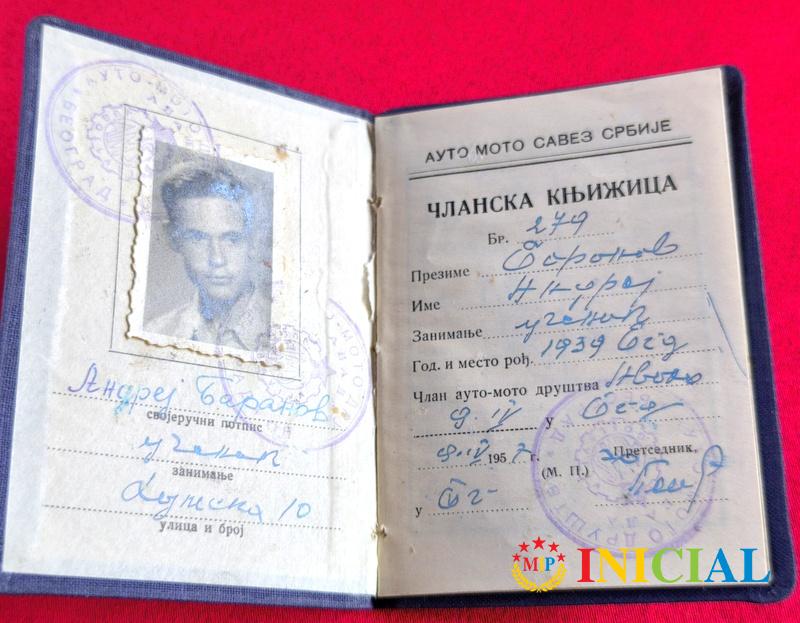 АУТО-МОТО
БЕОГРАД
Андреј Баранов
својеручни потпис
ученик
занимање
10
улица и број
АУТО МОТО САВЕЗ СРБИЈЕ
ЧЛАНСКА КЊИЖИЦА
Бр. 279
Презиме Баранов
Име Андреј
Занимање ученик
Год. и место рођ. 1939 Бгд
Члан ауто-мото друштва
9. IV у Бгд
9. IV 1957 г.
Претседник,
(М. П.)
у Бг-
MP INICIAL